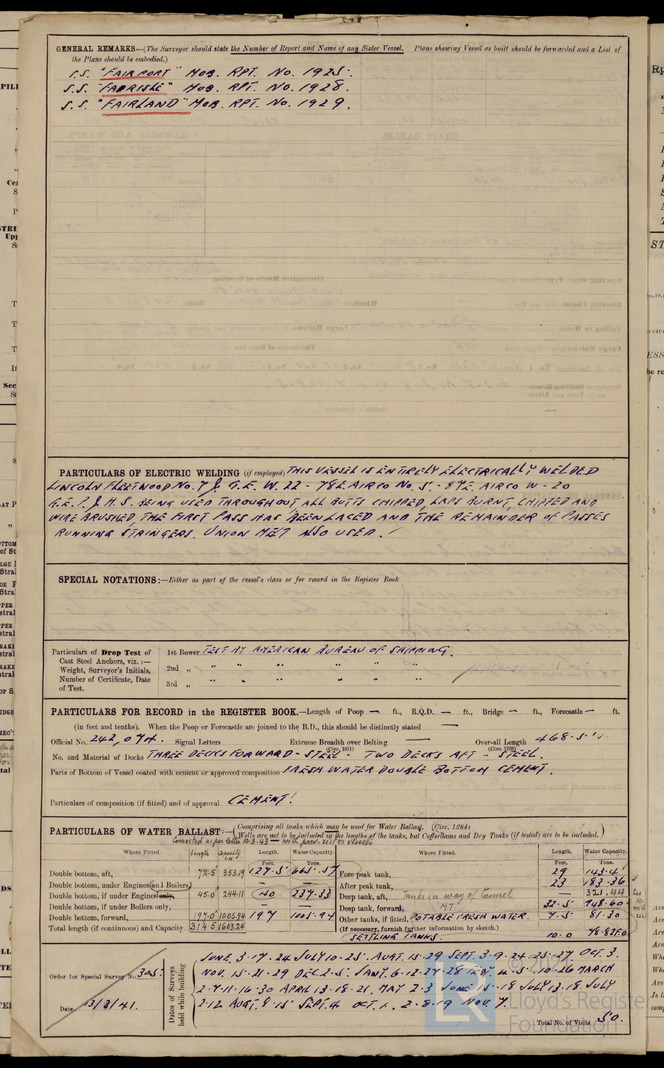 GENERAL REMARKS—(The Surveyor should state the Number of Report and Name of any Sister Vessel. Plans showing Vessel as built should be forwarded and a List of
the Plans should be embodied.)
S.S. "FAIRPORT" MOB. RPT. No. 1925.
S.S. "FAIRISLE" MOB. RPT. No. 1928.
S.S. "FAIRLAND" MOB. RPT. No. 1929.
PARTICULARS OF ELECTRIC WELDING (if employed) THIS VESSEL IS ENTIRELY ELECTRICALLY WELDED
LINCOLN FLEETWOOD No. 7 & G.E. W. 22 - 78E. AIRCO No. 5. - 87E. AIRCO W - 20
G.E. P. & H.S. BEING USED THROUGHOUT, ALL BUTTS CHIPPED, LAPS BURNT, CHIPPED AND
WIRE BRUSHED, THE FIRST PASS HAS BEEN LACED AND THE REMAINDER OF PASSES
RUNNING STRINGERS. UNION MET ALSO USED.
SPECIAL NOTATIONS:—Either as part of the vessel's class or for record in the Register Book
Particulars of Drop Test of
Cast Steel Anchors, viz. :—
Weight, Surveyor's Initials,
Number of Certificate, Date
of Test.
1st Bower TEST AT AMERICAN BUREAU OF SHIPPING.
2nd „ " " " " " "
3rd „ " " " " " "
PARTICULARS FOR RECORD in the REGISTER BOOK.—Length of Poop — ft., R.Q.D. — ft., Bridge — ft., Forecastle — ft.
(in feet and tenths). When the Poop or Forecastle are joined to the R.D., this should be distinctly stated —
Official No. 242,074. Signal Letters Extreme Breadth over Belting — Over-all Length 468.5
No. and Material of Decks THREE DECKS FORWARD - STEEL - TWO DECKS AFT - STEEL.
Parts of Bottom of Vessel coated with cement or approved composition FRESH WATER DOUBLE BOTTOM CEMENT.
Particulars of composition (if fitted) and of approval CEMENT.
PARTICULARS OF WATER BALLAST:—(Comprising all tanks which may be used for Water Ballast. (Circ. 1284)
Wells are not to be included in the lengths of the tanks, but Cofferdams and Dry Tanks (if tested) are to be included.)
Where Fitted. Length Capacity Length. Water Capacity. Where Fitted. Length. Water Capacity.
Feet. Tons. Feet. Tons.
Double bottom, aft, 72.5 353.19 127.5 Fore peak tank, 29 143.4
Double bottom, under Engines and Boilers, — — After peak tank, 23 183.36
Double bottom, if under Engines only, 45.0 244.11 40 237.33 Deep tank, aft, Tanks in way of tunnel — 321.44
Double bottom, if under Boilers only, — Deep tank, forward, 32.5 748.60
Double bottom, forward, 197.0 1005.94 197 1005.94 Other tanks, if fitted, POTABLE FRESH WATER 7.5 81.30
Total length (if continuous) and Capacity 314.5 1603.24 (If necessary, furnish further information by sketch.)
SETTLING TANKS. 10.0
Order for Special Survey No. 305.
Date 13/3/41.
Dates of Surveys
held while building
JUNE. 3. 17. 24 JULY 10. 25. AUGT. 15. 29 SEPT. 3. 9. 24. 25. 27. OCT. 3.
NOV. 15. 21. 29 DEC 2. 5. JANY. 6. 12. 27. 28 FEBY. 4. 5. 10. 26 MARCH
2. 7. 11. 16. 30 APRIL 13. 18. 21. MAY 2. 3 JUNE 15. 18 JULY 13. 18 JULY
2. 12 AUGT. 8. 15 SEPT. 4 OCT. 1. 2. 8. 19 NOV. 7.
Total No. of Visits 50.
Lloyd's Register
Foundation